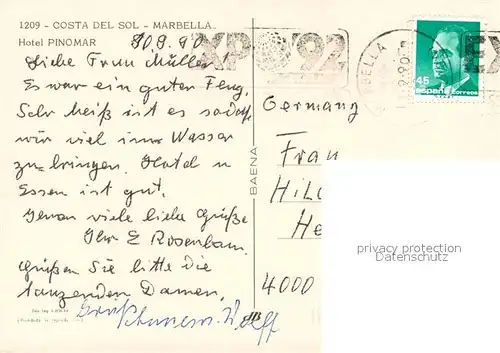 1209 - COSTA DEL SOL - MARBELLA
Hotel PINOMAR
30.9.90
Liebe Frau Müller!
Es war ein guten Flug,
Sehr heiß ist es sodaß
wir viel im Wasser
zu bringen. Hotel u
Essen ist gut.
viele liebe Grüße
Ihr E Rosenbaum
Grüßen Sie bitte die
tanzenden Damen,
BAENA
EXPO '92
MARBELLA
45
españa correos
EX
Germany
Frau
HILD
He
4000
privacy protection
Datenschutz